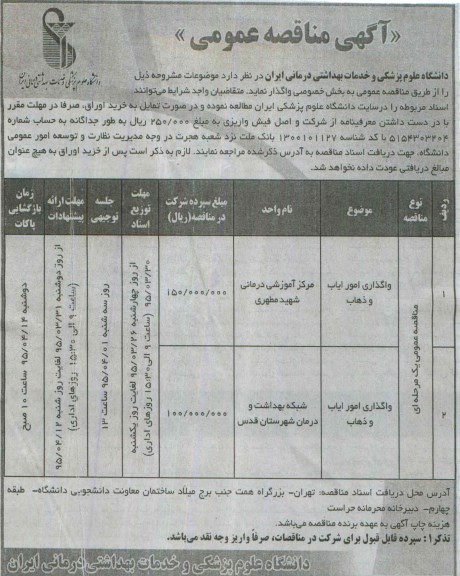 «آگهی مناقصه عمومی»
دانشگاه علوم پزشکی و خدمات بهداشتی درمانی ایران
دانشگاه علوم پزشکی و خدمات بهداشتی درمانی ایران در نظر دارد موضوعات مشروحه ذیل
را از طریق مناقصه عمومی به بخش خصوصی واگذار نماید. متقاضیان واجد شرایط می‌توانند
اسناد مربوطه را درسایت دانشگاه علوم پزشکی ایران مطالعه نموده و در صورت تمایل به خرید اوراق، صرفا در مهلت مقرر
با در دست داشتن معرفینامه از شرکت و اصل فیش واریزی به مبلغ ۲۵۰/۰۰۰ ریال به طور جداگانه به حساب شماره
۵۱۵۴۳۰۳۶۰۴ با کد شناسه ۱۳۰۰۱۰۱۱۲۷ بانک ملت نزد شعبه هجرت در وجه مدیریت نظارت و توسعه امور عمومی
دانشگاه، جهت دریافت اسناد مناقصه به آدرس ذکرشده مراجعه نمایند. لازم به ذکر است پس از خرید اوراق به هیچ عنوان
مبالغ دریافتی عودت داده نخواهد شد.
ردیف
نوع مناقصه
موضوع
نام واحد
مبلغ سپرده شرکت در مناقصه (ریال)
مهلت توزیع اسناد
جلسه توجیهی
مهلت ارائه پیشنهادات
زمان بازگشایی پاکات
۱
مناقصه عمومی یک مرحله ای
واگذاری امور ایاب و ذهاب
مرکز آموزشی درمانی شهید مطهری
۱۵۰/۰۰۰/۰۰۰
از روز چهارشنبه ۹۵/۰۳/۲۶ لغایت روز یکشنبه ۹۵/۰۳/۳۰ (ساعت ۹ الی ۱۵:۳۰ روزهای اداری)
روز سه شنبه ۹۵/۰۴/۰۱ ساعت ۱۳
از روز دوشنبه ۹۵/۰۳/۳۱ لغایت روز شنبه ۹۵/۰۴/۱۲ (ساعت ۹ الی ۱۵:۳۰ روزهای اداری)
دوشنبه ۹۵/۰۴/۱۴ ساعت ۱۰ صبح
۲
واگذاری امور ایاب و ذهاب
شبکه بهداشت و درمان شهرستان قدس
۱۰۰/۰۰۰/۰۰۰
آدرس محل دریافت اسناد مناقصه: تهران- بزرگراه همت جنب برج میلاد ساختمان معاونت دانشجویی دانشگاه- طبقه
چهارم- دبیرخانه محرمانه حراست
هزینه چاپ آگهی به عهده برنده مناقصه می‌باشد.
تذکر۱: سپرده قابل قبول برای شرکت در مناقصات، صرفاً واریز وجه نقد می‌باشد.
دانشگاه علوم پزشکی و خدمات بهداشتی درمانی ایران